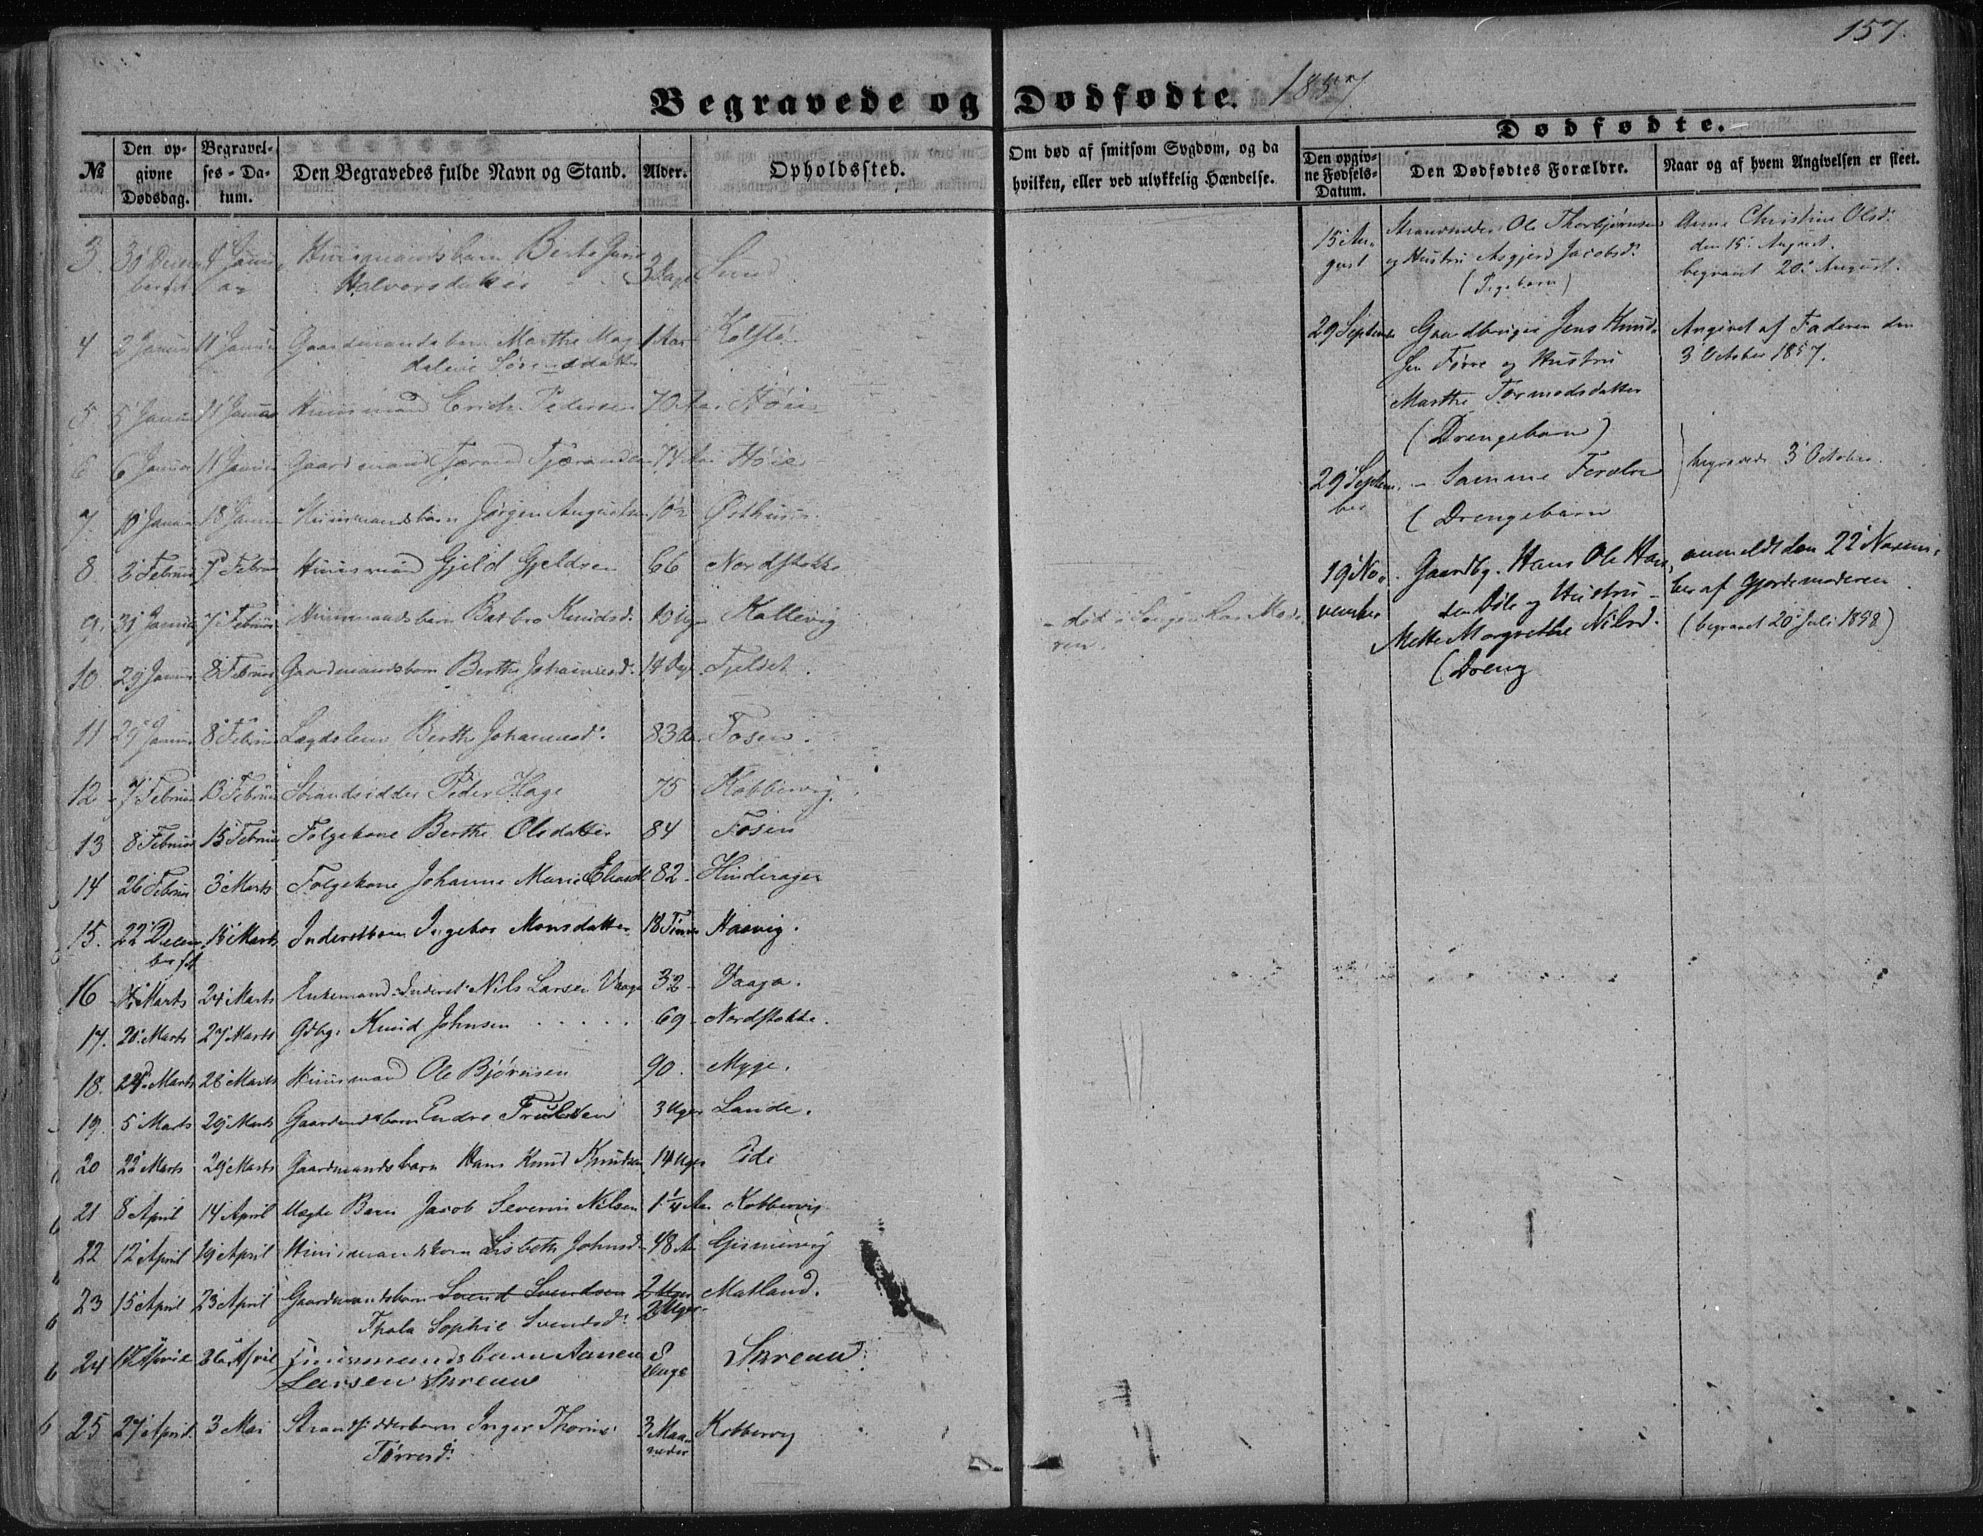 157.
Begravede og Dødfødte. 1857
№
Den opgivne Dødsdag.
Begravelses-Datum.
Den Begravedes fulde Navn og Stand.
Alder.
Opholdssted.
Om død af smitsom Sygdom, og da hvilken, eller ved ulykkelig Hændelse.
Dødfødte.
Den opgivne Fødsels-Datum.
Den Dødfødtes Forældre.
Naar og af hvem Angivelsen er skeet.
3. Huusmandsbarn Berte
Halvorsdatter Lund
4 2 Januar 11 Januar Gaardmandsbarn Marthe Mag
dalene Sørensdatter 1 Aar Kolstø
5 5 Januar 11 Januar Huusmand Erich Pedersen 70 Aar Høie
6 6 Januar 11 Januar Gaardmand 74 Aar Høie
7. 10 Januar 18 Januar Huusmandsbarn Jørgen Augustsen Østhuus
8. 3 Februar 7 Februar Huusmand Gjeld Gjeldsen 66 Nordstokke
9. 31 Januar 7 Februar Huusmandsbarn Barbro Knudsd. Kallevig
10. 29 Januar 8 Februar Gaardmandsbarn Berthe Johannesd. 14 Dge Fjeldet
11 29 Januar 8 Februar Lægdslem Berthe Johannesd. 83 Aar Fosen.
12 7 Februar 13 Februar Strandsidder Peder Hage 75 Kobbervig.
13 8 Februar 15 Februar Folgekone Berthe Olsdatter 84 Fosen
14 26 Februar 3 Marts Folgekone Johanne Marie 82 Hinderager
15. 22 Decem
ber f.A. 15 Marts Inderstbarn Ingebor Monsdatter 18 Timer Haavig.
16 Marts 24 Marts Enkemand Inderst Nils Larsen Vaage 32 Vaage.
17. 20 Marts 27 Marts Gdbg. Knud Johnsen 69 Nordstokke.
18. 24 Marts 28 Marts Huusmand Ole Bjørnsen 90. Myge.
19. 5 Marts 29 Marts Gaardmdsbarn Endre 3 Uger Lande.
20 22 Marts 29 Marts Gaardmandsbarn Hans Knud Knudsen 14 Uger Eide
21 8 April 14 April Uægte Barn Jacob Severin Nilsen 1 1/4 Aar Kobbervig
22 12 April 19 April Huusmandskone Lisbeth Johnsd. 48 Aar Gismervig
23 15 April 23 April Gaardmandsbarn Svend Svendsen 2 Uger Matland.
Thala Sophie Svendsd. 2 Uger
24 17 April 26 April Huusmandsbarn Aanen
Larsen Skreue 8 Uge Skreue.
25 27 April 3 Mai Strandsidderbarn Inger Thorine
Tørresd. 3 Maaneder Kobbervig
15 August Strandsidder Ole Thorbjørnsen
og Hustru Asgjerd Jacobsd.
(Pigebarn)
Anne Christine Olsd.
den 15 August.
begravet 20 August.
29 September Gaardbruger Jens Knud-
sen Førre og Hustru
Marthe Tormodsdatter
(Drengebarn)
Angivet af Faderen den
3 October 1857.
29 Septem
ber Samme Forældre
(Drengebarn
begravede 3 October.
19 No-
vember Gaardbg. Hans Ole Han-
sen og Hustru
Mette Margrethe Nilsd.
(Dreng
anmeldt den 22 Novem-
ber af Gjordemoderen
(begravet 20 Juli 1858)